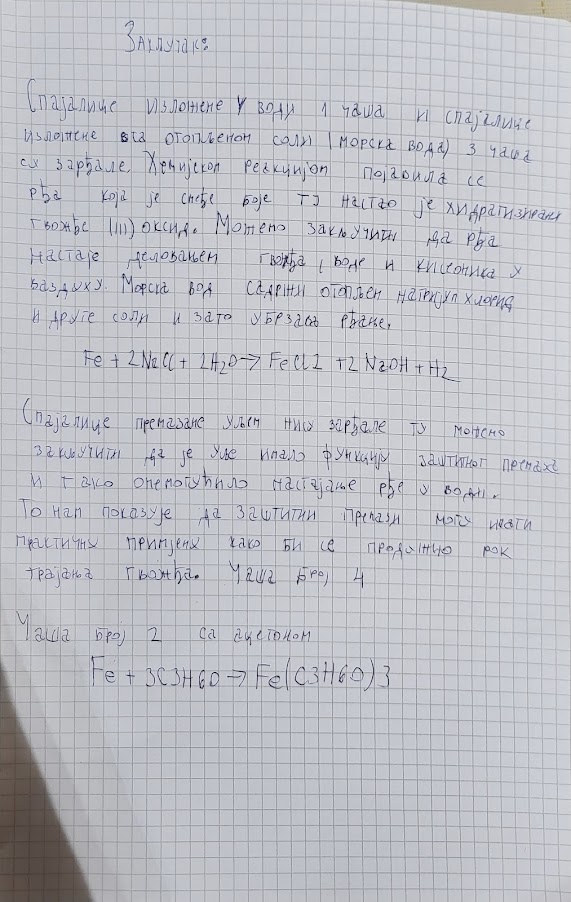 Закључак:
Спајалице изложене у води 1 чаша и спајалице
изложене отопљеном соли (морска вода) 3 чаша
су зарђале. Хемијском реакцијом појавила се
рђа која је смеђе боје ту настао је хидратизирани
гвожђе (III) оксид. Можемо закључити да рђа
настаје деловањем гвожђа, воде и кисеоника у
ваздуху. Морска вод садржи отопљен натријум хлорид
и друге соли и зато убрзава рђање.
Fe + 2NaCl + 2H2O → FeCl2 + 2 NaOH + H2
Спајалице премазане уљем нису зарђале ту можемо
закључити да је уље имало функцију заштитног премаза
и тако онемогућило настајање рђе у води.
То нам показује да заштитни премази могу имати
практичну примјену како би се продужио рок
трајања гвожђа. Чаша број 4
Чаша број 2 са ацетоном
Fe + 3C3H6O → Fe(C3H6O)3